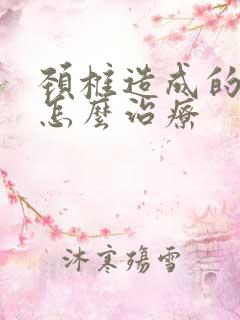 頚椎造成的
怎麼治療
沐寒殤雪